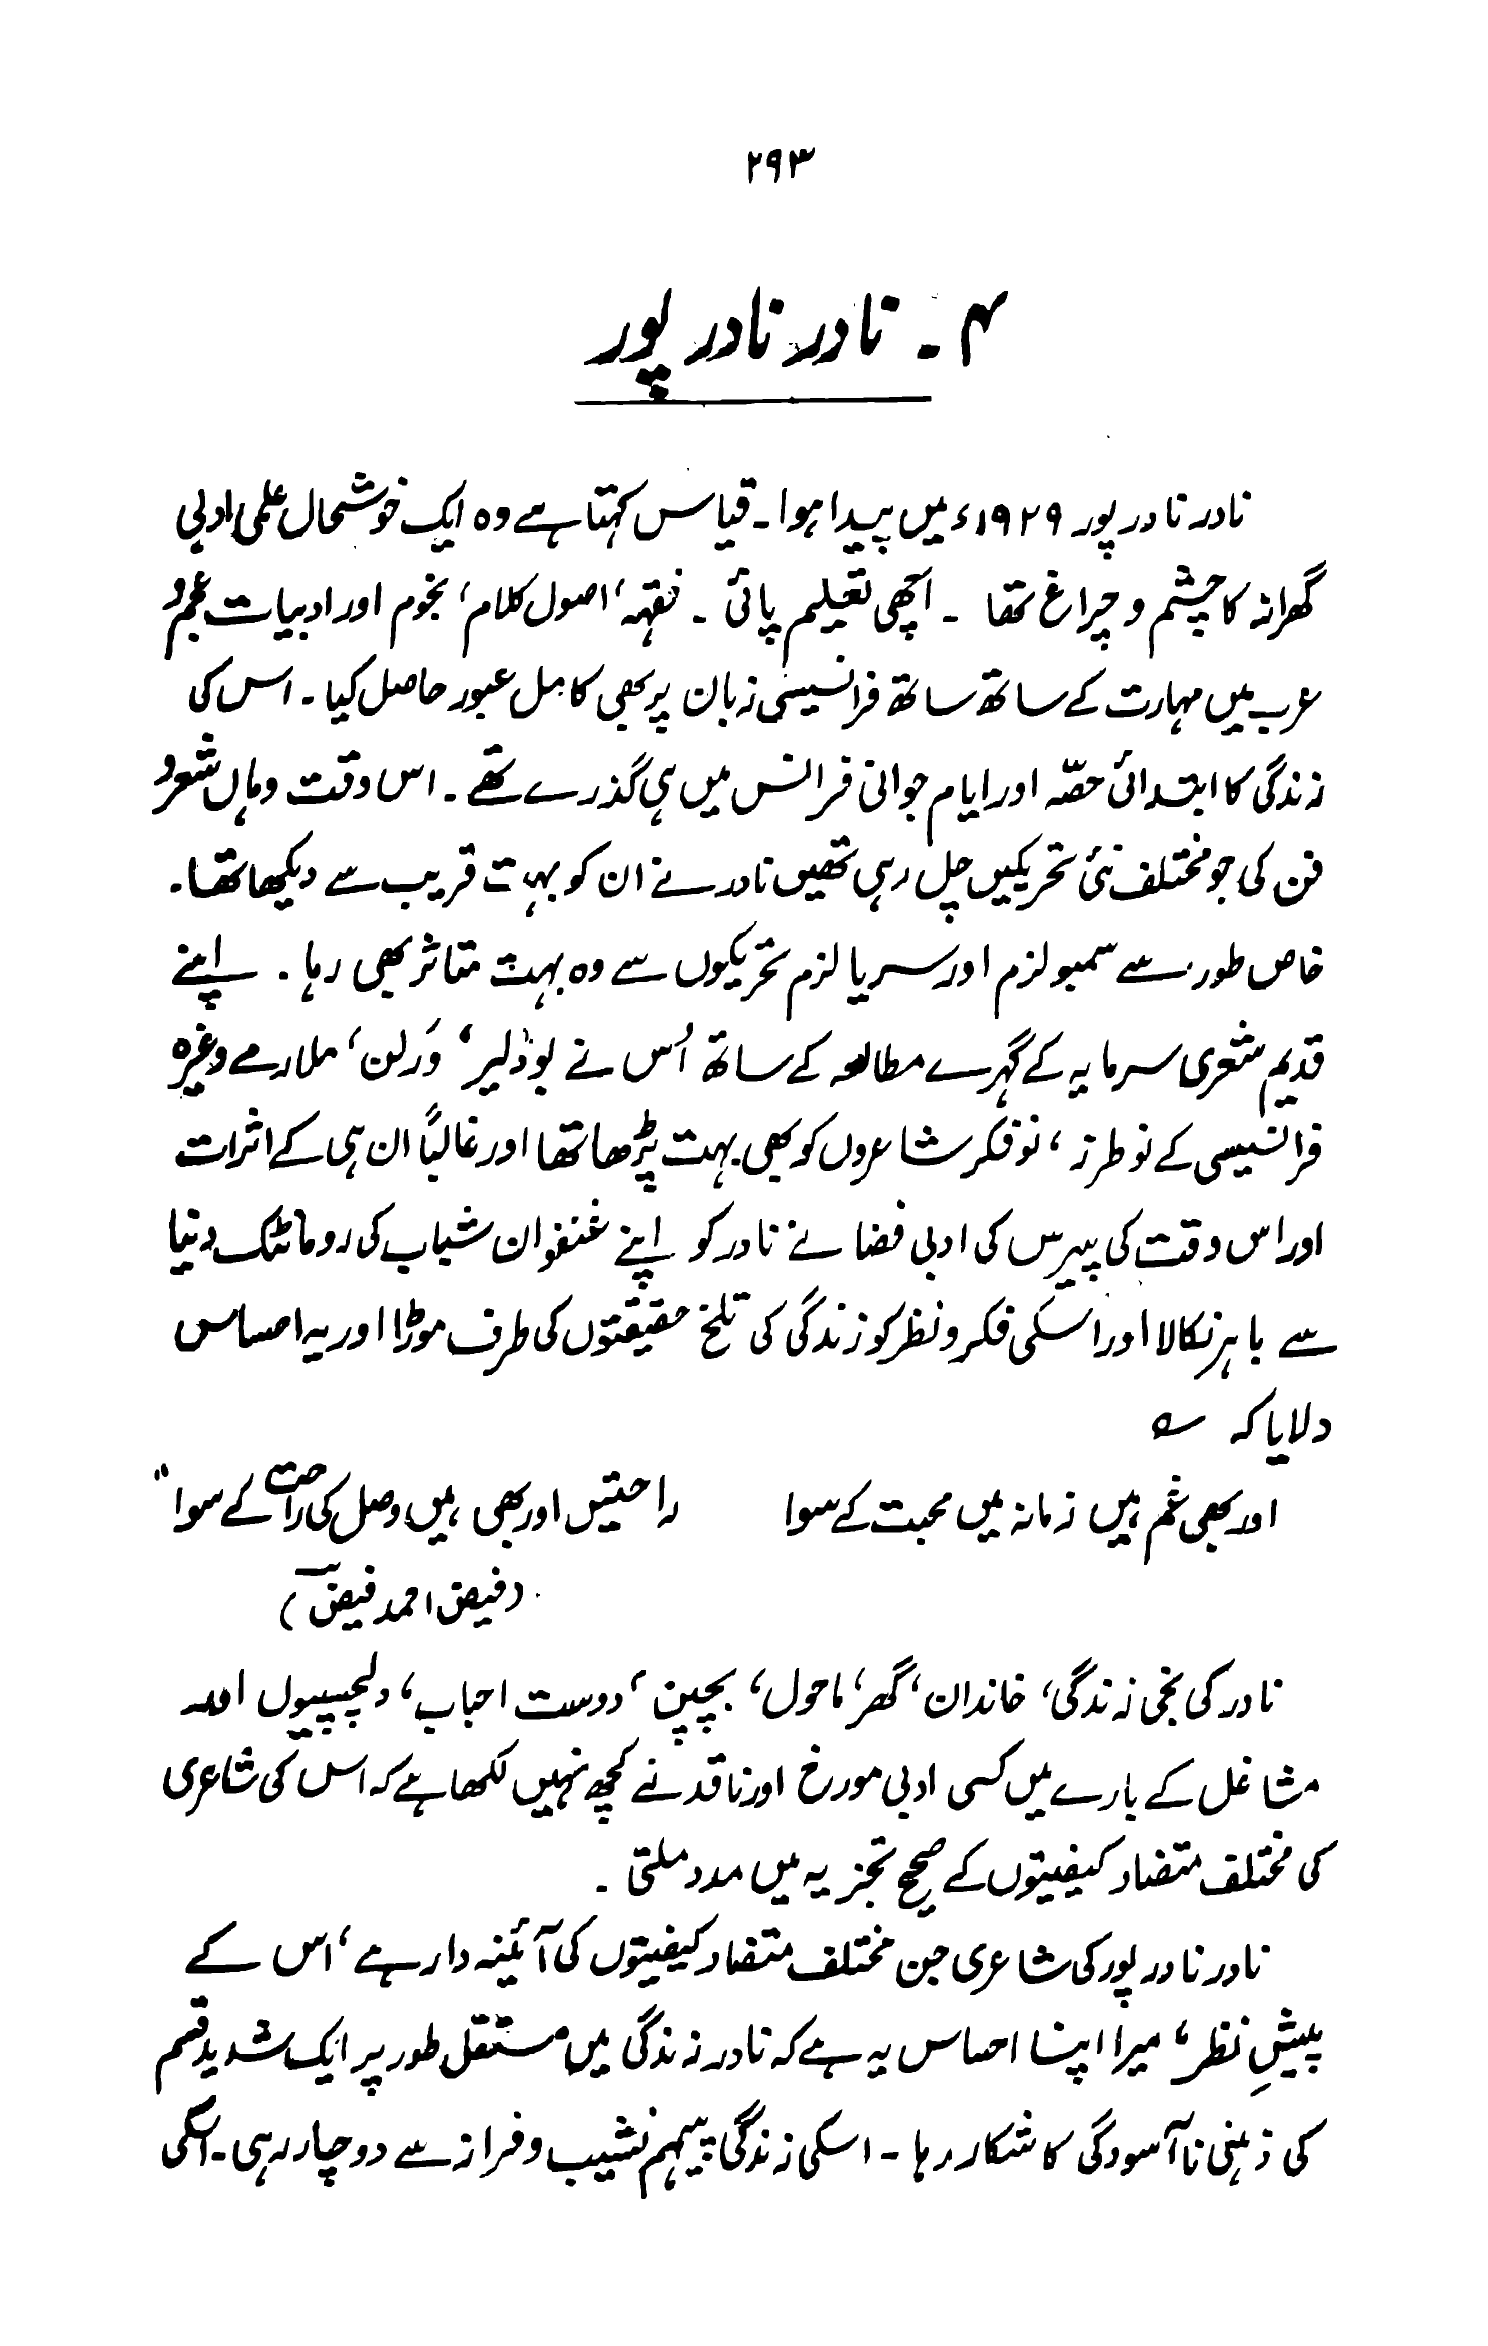 ۲۹۳
۴ ۔ نادر نادر پور
نادر نادر پور ۱۹۲۹ء میں پیدا ہوا ۔ قیاس کہتا ہے وہ ایک خوشحال علمی ادبی
گھرانہ کا چشم و چراغ تھا ۔ اچھی تعلیم پائی ۔ فقہہ، اصول کلام، نجوم اور ادبیات عجم و
عرب میں مہارت کے ساتھ ساتھ فرانسیسی زبان پر بھی کامل عبور حاصل کیا ۔ اس کی
زندگی کا ابتدائی حصّہ اور ایام جوانی فرانس میں ہی گذرے تھے ۔ اس وقت وہاں شعر و
فن کی جو مختلف نئی تحریکیں چل رہی تھیں نادر نے ان کو بہت قریب سے دیکھا تھا ۔
خاص طور سے سمبولزم اور سریالزم تحریکوں سے وہ بہت متاثر بھی رہا ۔ اپنے
قدیم شعری سرمایہ کے گہرے مطالعہ کے ساتھ اُس نے بودلیر، وَرلن، ملارمے وغیرہ
فرانسیسی کے نو طرز، نو فکر شاعروں کو بھی بہت پڑھا تھا اور غالباً ان ہی کے اثرات
اور اس وقت کی پیرس کی ادبی فضا نے نادر کو اپنے عنفوان شباب کی رومانٹک دنیا
سے باہر نکالا اور اسکی فکر و نظر کو زندگی کی تلخ حقیقتوں کی طرف موڑا اور یہ احساس
دلایا کہ ؎
اور بھی غم ہیں زمانہ میں محبت کے سوا راحتیں اور بھی ہیں وصل کی راحت کے سوا"
(فیض احمد فیضؔ)
نادر کی نجی زندگی، خاندان، گھر، ماحول، بچپن، دوست احباب، دلچسپیوں اور
مشاغل کے بارے میں کسی ادبی مورخ اور ناقد نے کچھ نہیں لکھا ہے کہ اس کی شاعری
کی مختلف متضاد کیفیتوں کے صحیح تجزیہ میں مدد ملتی ۔
نادر نادر پور کی شاعری جن مختلف متضاد کیفیتوں کی آئینہ دار ہے، اس کے
پیشِ نظر، میرا اپنا احساس یہ ہے کہ نادر زندگی میں مستقل طور پر ایک شدید قسم
کی ذہنی ناآسودگی کا شکار رہا ۔ اسکی زندگی پیہم نشیب و فراز سے دوچار رہی ۔ اسکی